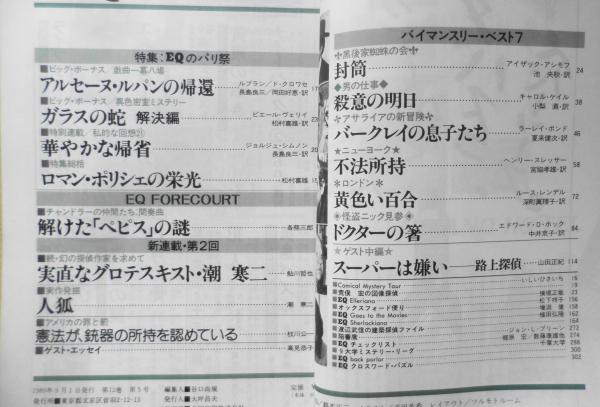 特集:EQのパリ祭
■ビッグ・ボーナス/戯曲一幕八場
アルセーヌ・ルパンの帰還
ルブラン/ド・クロワセ
長島良三/岡田好恵・訳
■ビッグ・ボーナス/異色密室ミステリー
ガラスの蛇 解決編
ピエール・ヴェリイ
松村喜雄・訳
■特別連載/私的な回想㉑
華やかな帰省
ジョルジュ・シムノン
長島良三・訳
■特集総括
ロマン・ポリシェの栄光 松村喜雄
EQ FORECOURT
■チャンドラーの仲間たち:間奏曲
解けた「ペピス」の謎 各務三郎
新連載・第2回
■続・幻の探偵作家を求めて
実直なグロテスキスト・潮 寒二 鮎川哲也
■実作発掘
人狐 潮 寒二
■アメリカの罪と罰
憲法が、銃器の所持を認めている 枝川公一
■ゲスト・エッセイ 高見恭子
1989年9月1日発行 第12巻 第5号
発行所■東京都文京区音羽2-12-13
編集人■谷口尚規
発行人■大坪昌夫
バイマンスリー・ベスト7
✢黒後家蜘蛛の会✢
封筒 アイザック・アシモフ 24
池 央耿・訳
◆男の仕事◆
殺意の明日 キャロル・ケイル 38
小梨 直・訳
✢アサライアの新冒険✢
バークレイの息子たち ラーレイ・ボンド 46
夏来健次・訳
★ニューヨーク★
不法所持 ヘンリー・スレッサー 58
宮脇孝雄・訳
✻ロンドン✻
黄色い百合 ルース・レンデル 72
深町眞理子・訳
✴怪盗ニック見参✴
ドクターの箸 エドワード・D・ホック 84
中井京子・訳
★ゲスト中編★
スーパーは嫌い──路上探偵 山田正紀 114
■Comical Mystery Tour いしいひさいち 16
■荒俣 宏の図像探偵 19
■EQ Elleriana
■オックスフォード便り
■EQ Goes to the Movies
■EQ Sherlockiana
■渡辺武信の建築探偵ファイル
■陪審席 ジョン・L・ブリーン 272
■EQ チェックリスト
■8大学ミステリー・リーグ 千葉大学 298
■EQ back parlor 300
■EQ クロスワード・パズル 302